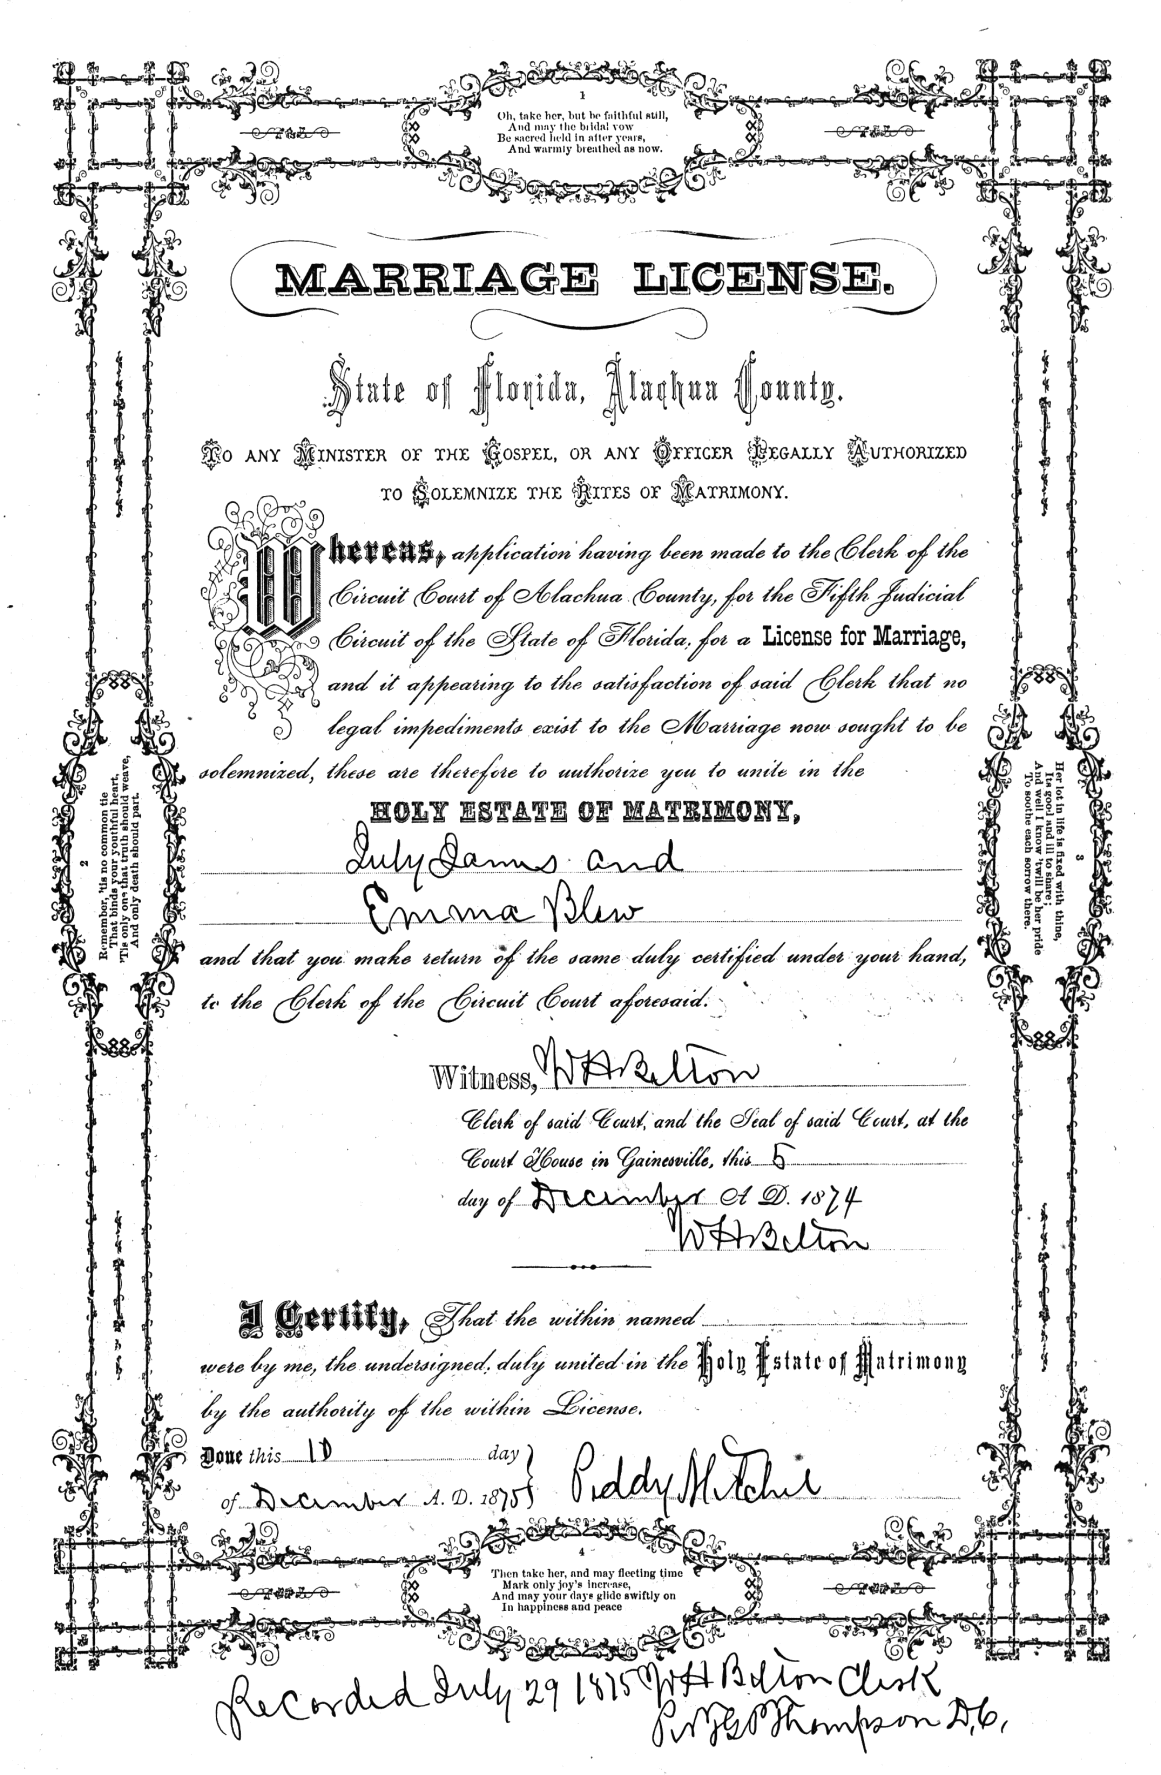 1
Oh, take her, but be faithful still,
And may the bridal vow
Be sacred held in after years,
And warmly breathed as now.
MARRIAGE LICENSE.
State of Florida, Alachua County.
TO ANY MINISTER OF THE GOSPEL, OR ANY OFFICER LEGALLY AUTHORIZED
TO SOLEMNIZE THE RITES OF MATRIMONY.
Whereas, application having been made to the Clerk of the
Circuit Court of Alachua County, for the Fifth Judicial
Circuit of the State of Florida, for a License for Marriage,
and it appearing to the satisfaction of said Clerk that no
legal impediments exist to the Marriage now sought to be
solemnized, these are therefore to authorize you to unite in the
HOLY ESTATE OF MATRIMONY,
July James and
Emma Blew
and that you make return of the same duly certified under your hand,
to the Clerk of the Circuit Court aforesaid.
Witness, W H Belton
Clerk of said Court, and the Seal of said Court, at the
Court House in Gainesville, this 5
day of December A. D. 1874
W H Belton
I Certify, That the within named
were by me, the undersigned, duly united in the Holy Estate of Matrimony
by the authority of the within License.
Done this 10 day
of December A. D. 1875
Peddy Mitchel
2
Remember, 'tis no common tie
That binds your youthful heart,
'Tis only one that truth should weave,
And only death should part.
3
Her lot in life is fixed with thine,
Its good and ill to share;
And well I know 'twill be her pride
To soothe each sorrow there.
4
Then take her, and may fleeting time
Mark only joy's increase,
And may your days glide swiftly on
In happiness and peace
Recorded July 29 1875 W H Belton Clerk
Thompson D.C.